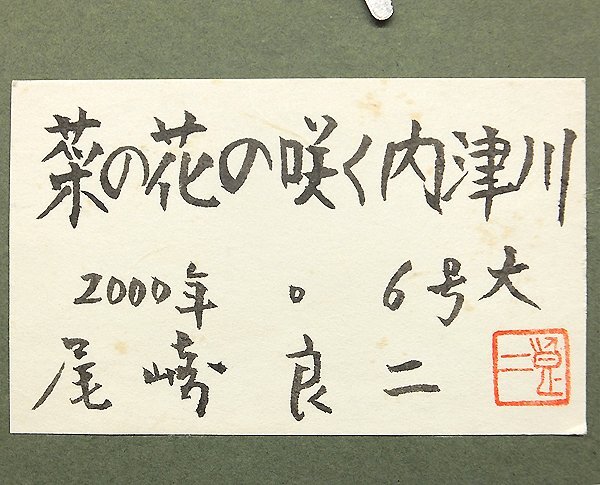 菜の花の咲く内津川
2000年 。 6号大
尾崎良二